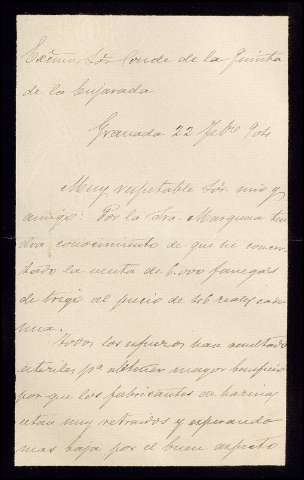 Excmo. Sór. Conde de la Quinta
de la Enjarada
Granada 22 Febro 904
Muy respetable Sór. mio y
amigo: Por la Sra. Marquesa ten
drá conocimiento de que he concer
tado la venta de 6.000 fanegas
de trigo al precio de reales cada
una.
Todos los esfuerzos han resultado
esteriles pa. obtener mayor beneficio
por que los fabricantes de harinas
estan muy retraidos y esperando
mas baja por el buen aspecto